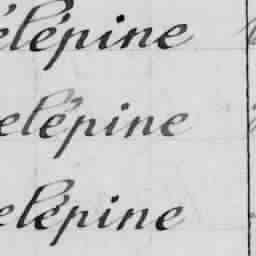 élépine
elépine
elépine